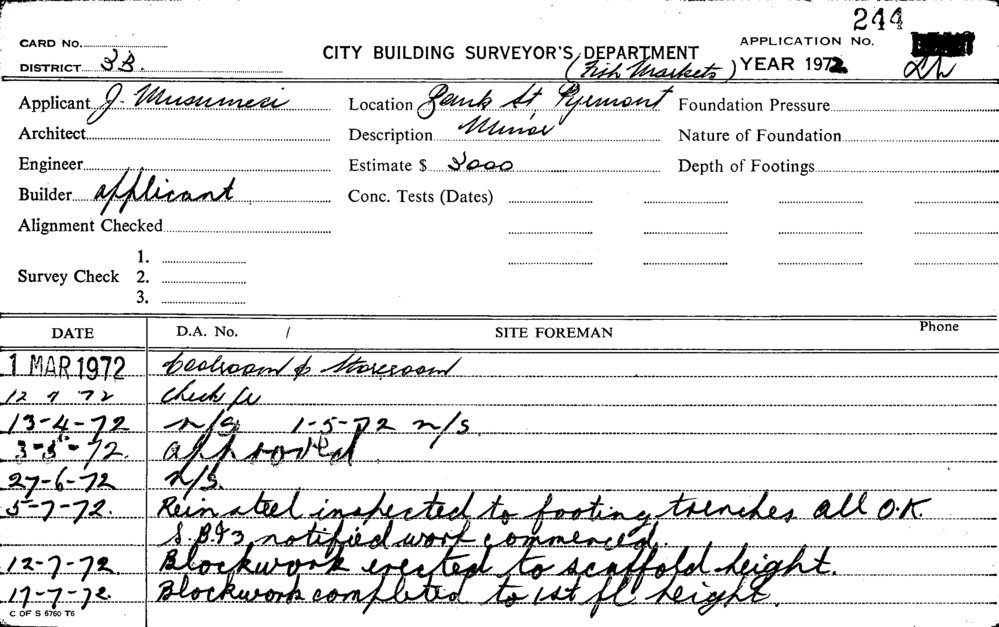 244
CARD No.
CITY BUILDING SURVEYOR'S DEPARTMENT
APPLICATION No.
DISTRICT 3B.
(Fish Markets)
YEAR 1972
Applicant J. Musumeci
Location Bank St Pyrmont
Foundation Pressure
Architect
Description Minor
Nature of Foundation
Engineer
Estimate $ 3000
Depth of Footings
Builder applicant
Conc. Tests (Dates)
Alignment Checked
1.
Survey Check 2.
3.
DATE D.A. No. / SITE FOREMAN Phone
1 MAR 1972 Coolroom & Storeroom
12 72 Check
13-4-72 n/s 1-5-72 n/s.
72. approved
27-6-72 n/s.
5-7-72. Rein steel inspected to footing trenches all O.K.
notified work commenced.
12-7-72 Blockwork erected to scaffold height.
17-7-72. Blockwork completed to 1st fl height.
C OF S 6760 T6